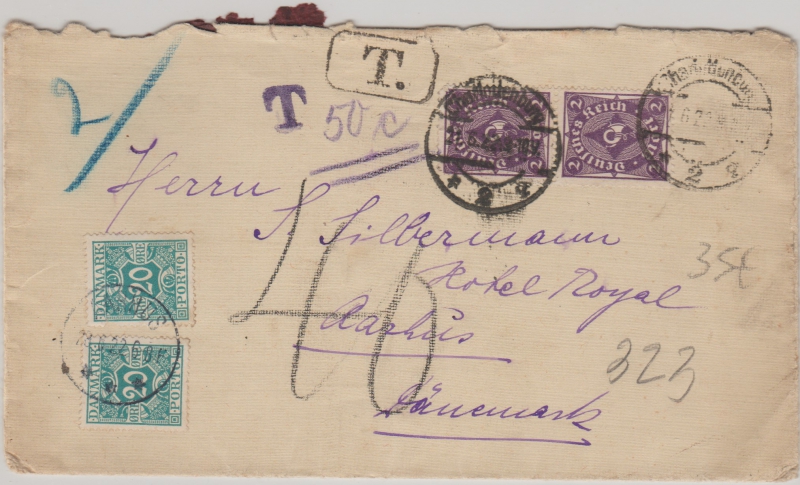 2/
T.
T
50 c
2 Deutsches Reich 2
2 Deutsches Reich 2
2 q
Herrn S. Silbermann
Hotel Royal
Aarhus
Dänemark
40
354
323
DANMARK
20
ØRE
PORTO
DANMARK
20
ØRE
PORTO